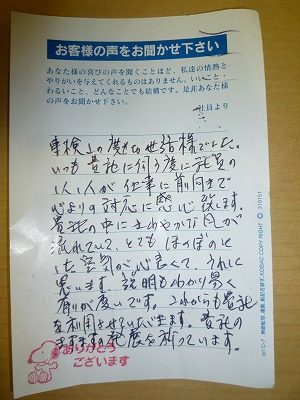 お客様の声をお聞かせ下さい
あなた様の喜びの声を聞くことほど、私達の情熱と
やりがいを与えてくれるものはありません。いいこと・
わるいこと、どんなことでも結構です。是非あなた様
の声をお聞かせ下さい。
社員より
車検上の度はお世話様でした。
いつも貴社に伺う度に社員の
1人1人が仕事に前向きで
心よりの対応に感心致します。
貴社の中にさわやかな風が
流れていて、とてもほのぼのと
した空気が心良くて、うれしく
思います。説明もわかり易く
有り難いです。これからも貴社
を利用させていただきます。貴社の
ますますの発展を祈っています。
ありがとう
ございます